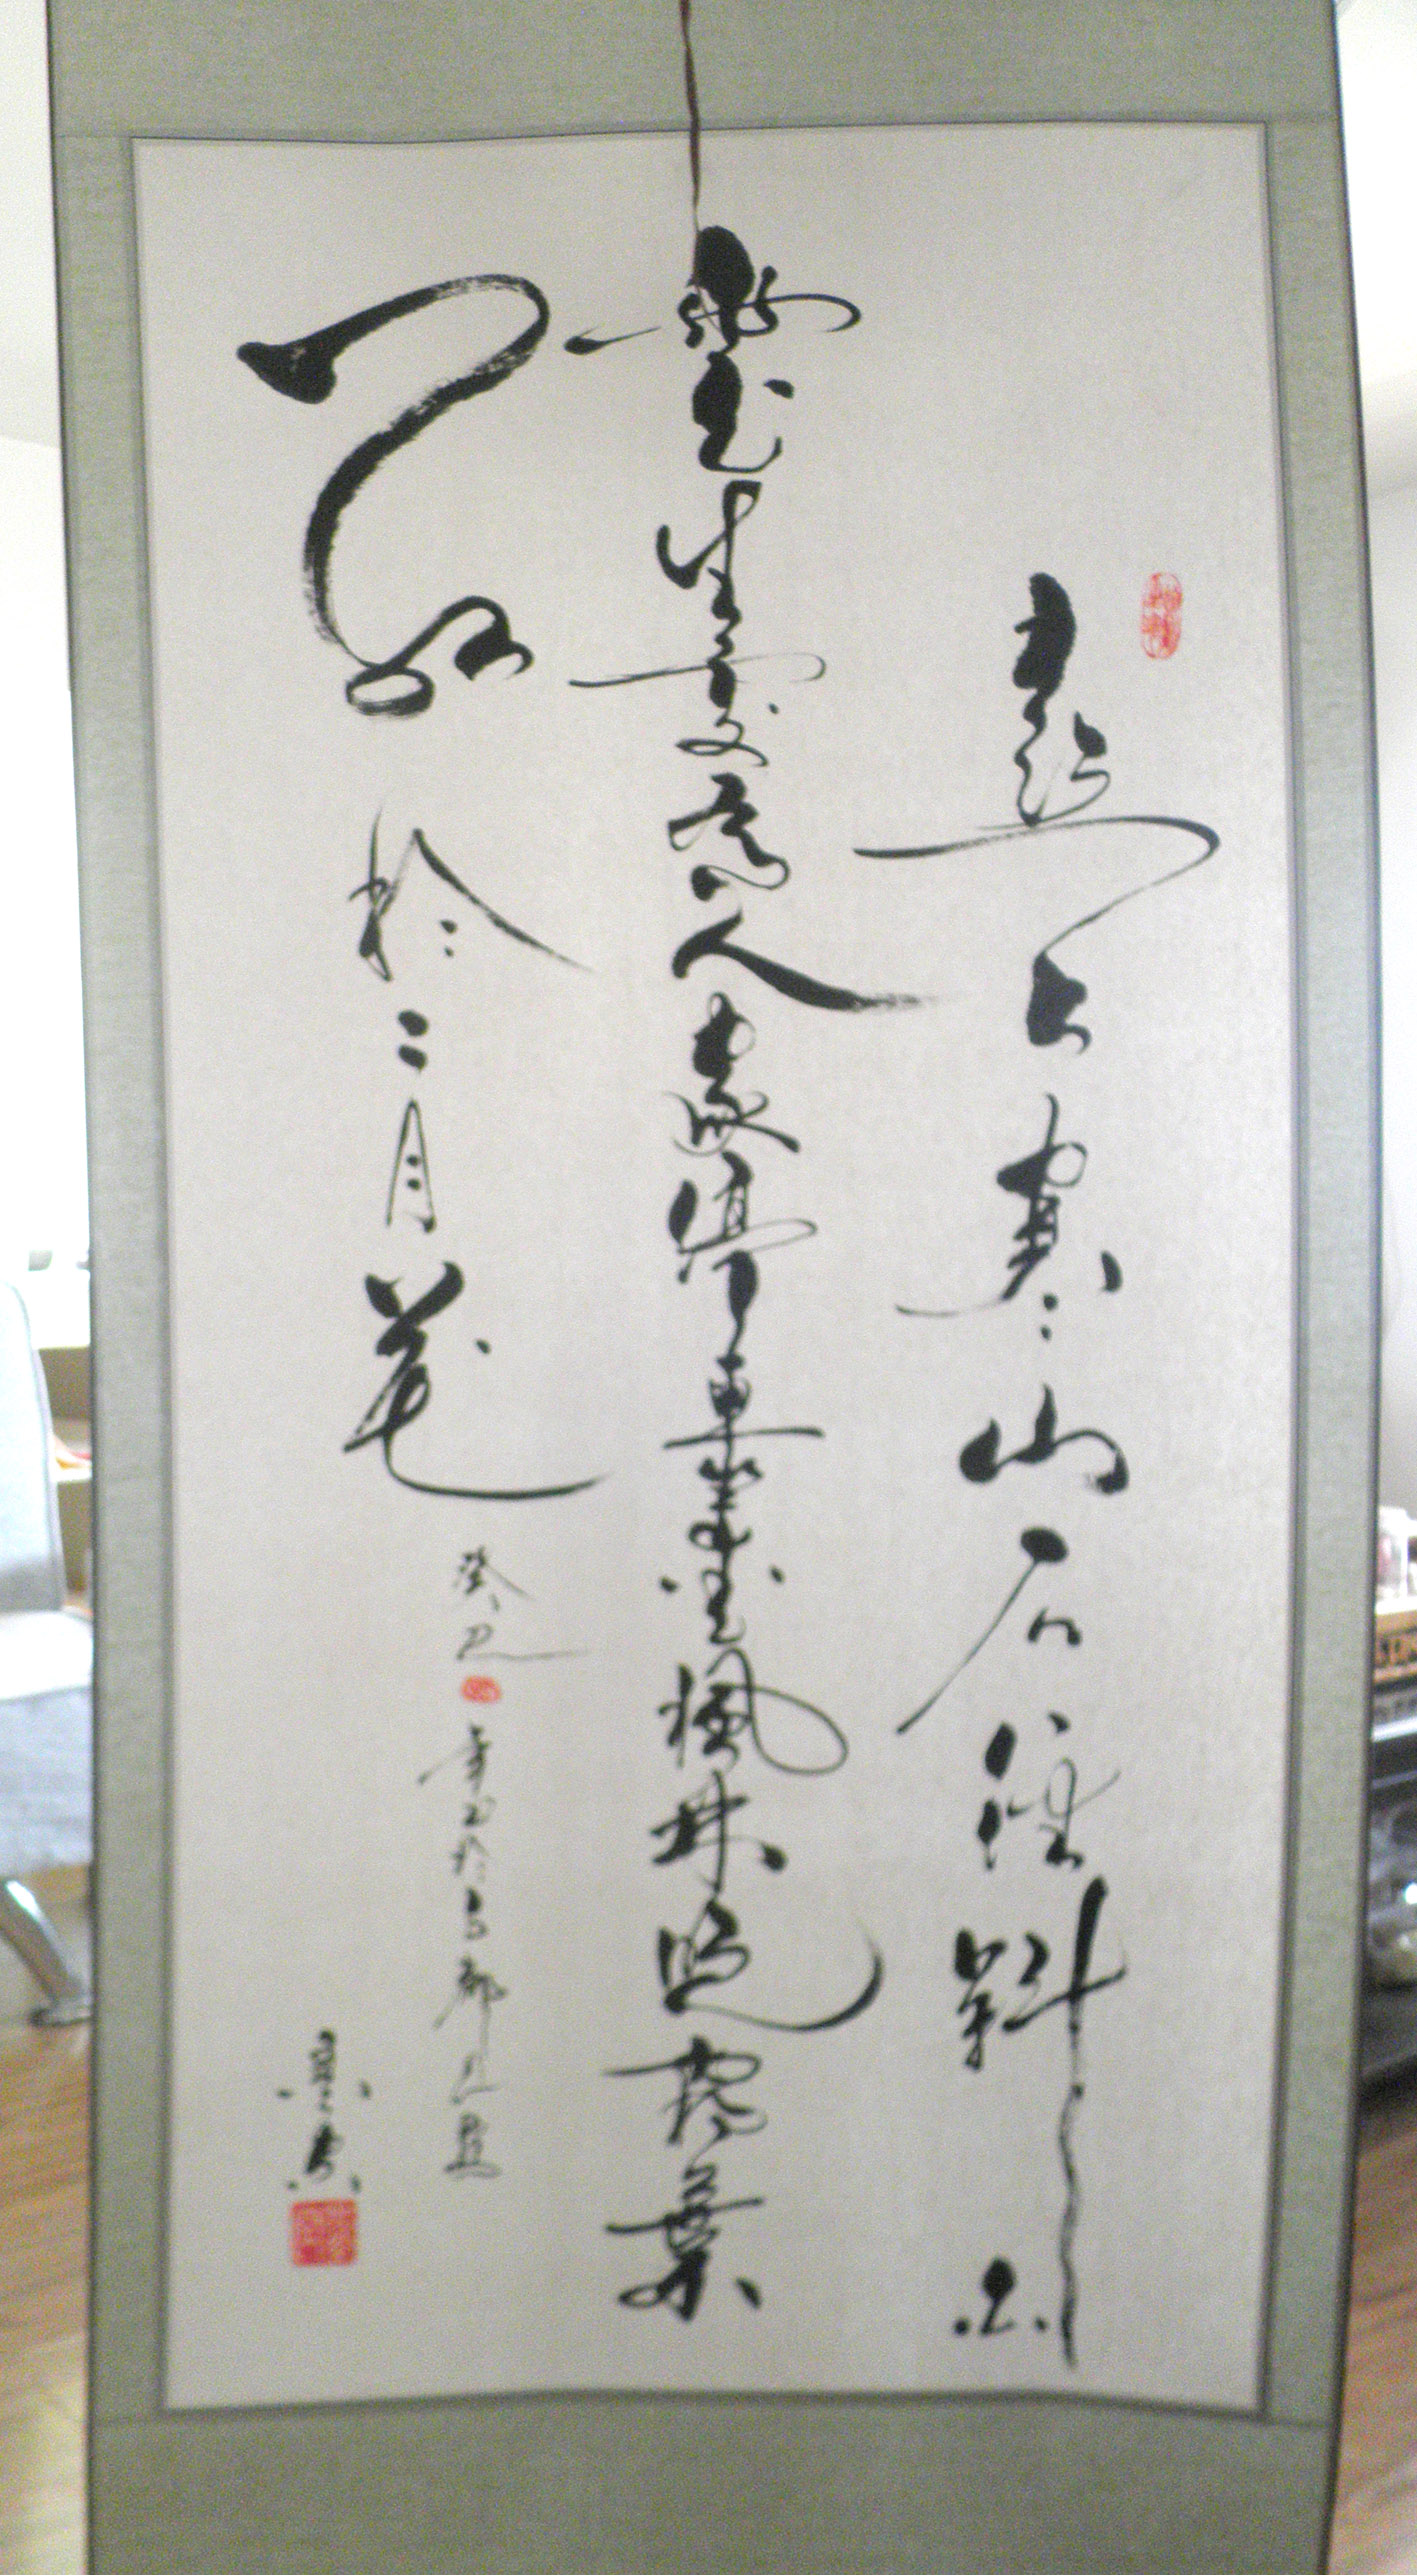 遠上寒山石徑斜白
雲生處有人家停車坐愛楓林晚霜葉
紅於二月花
癸巳年書於